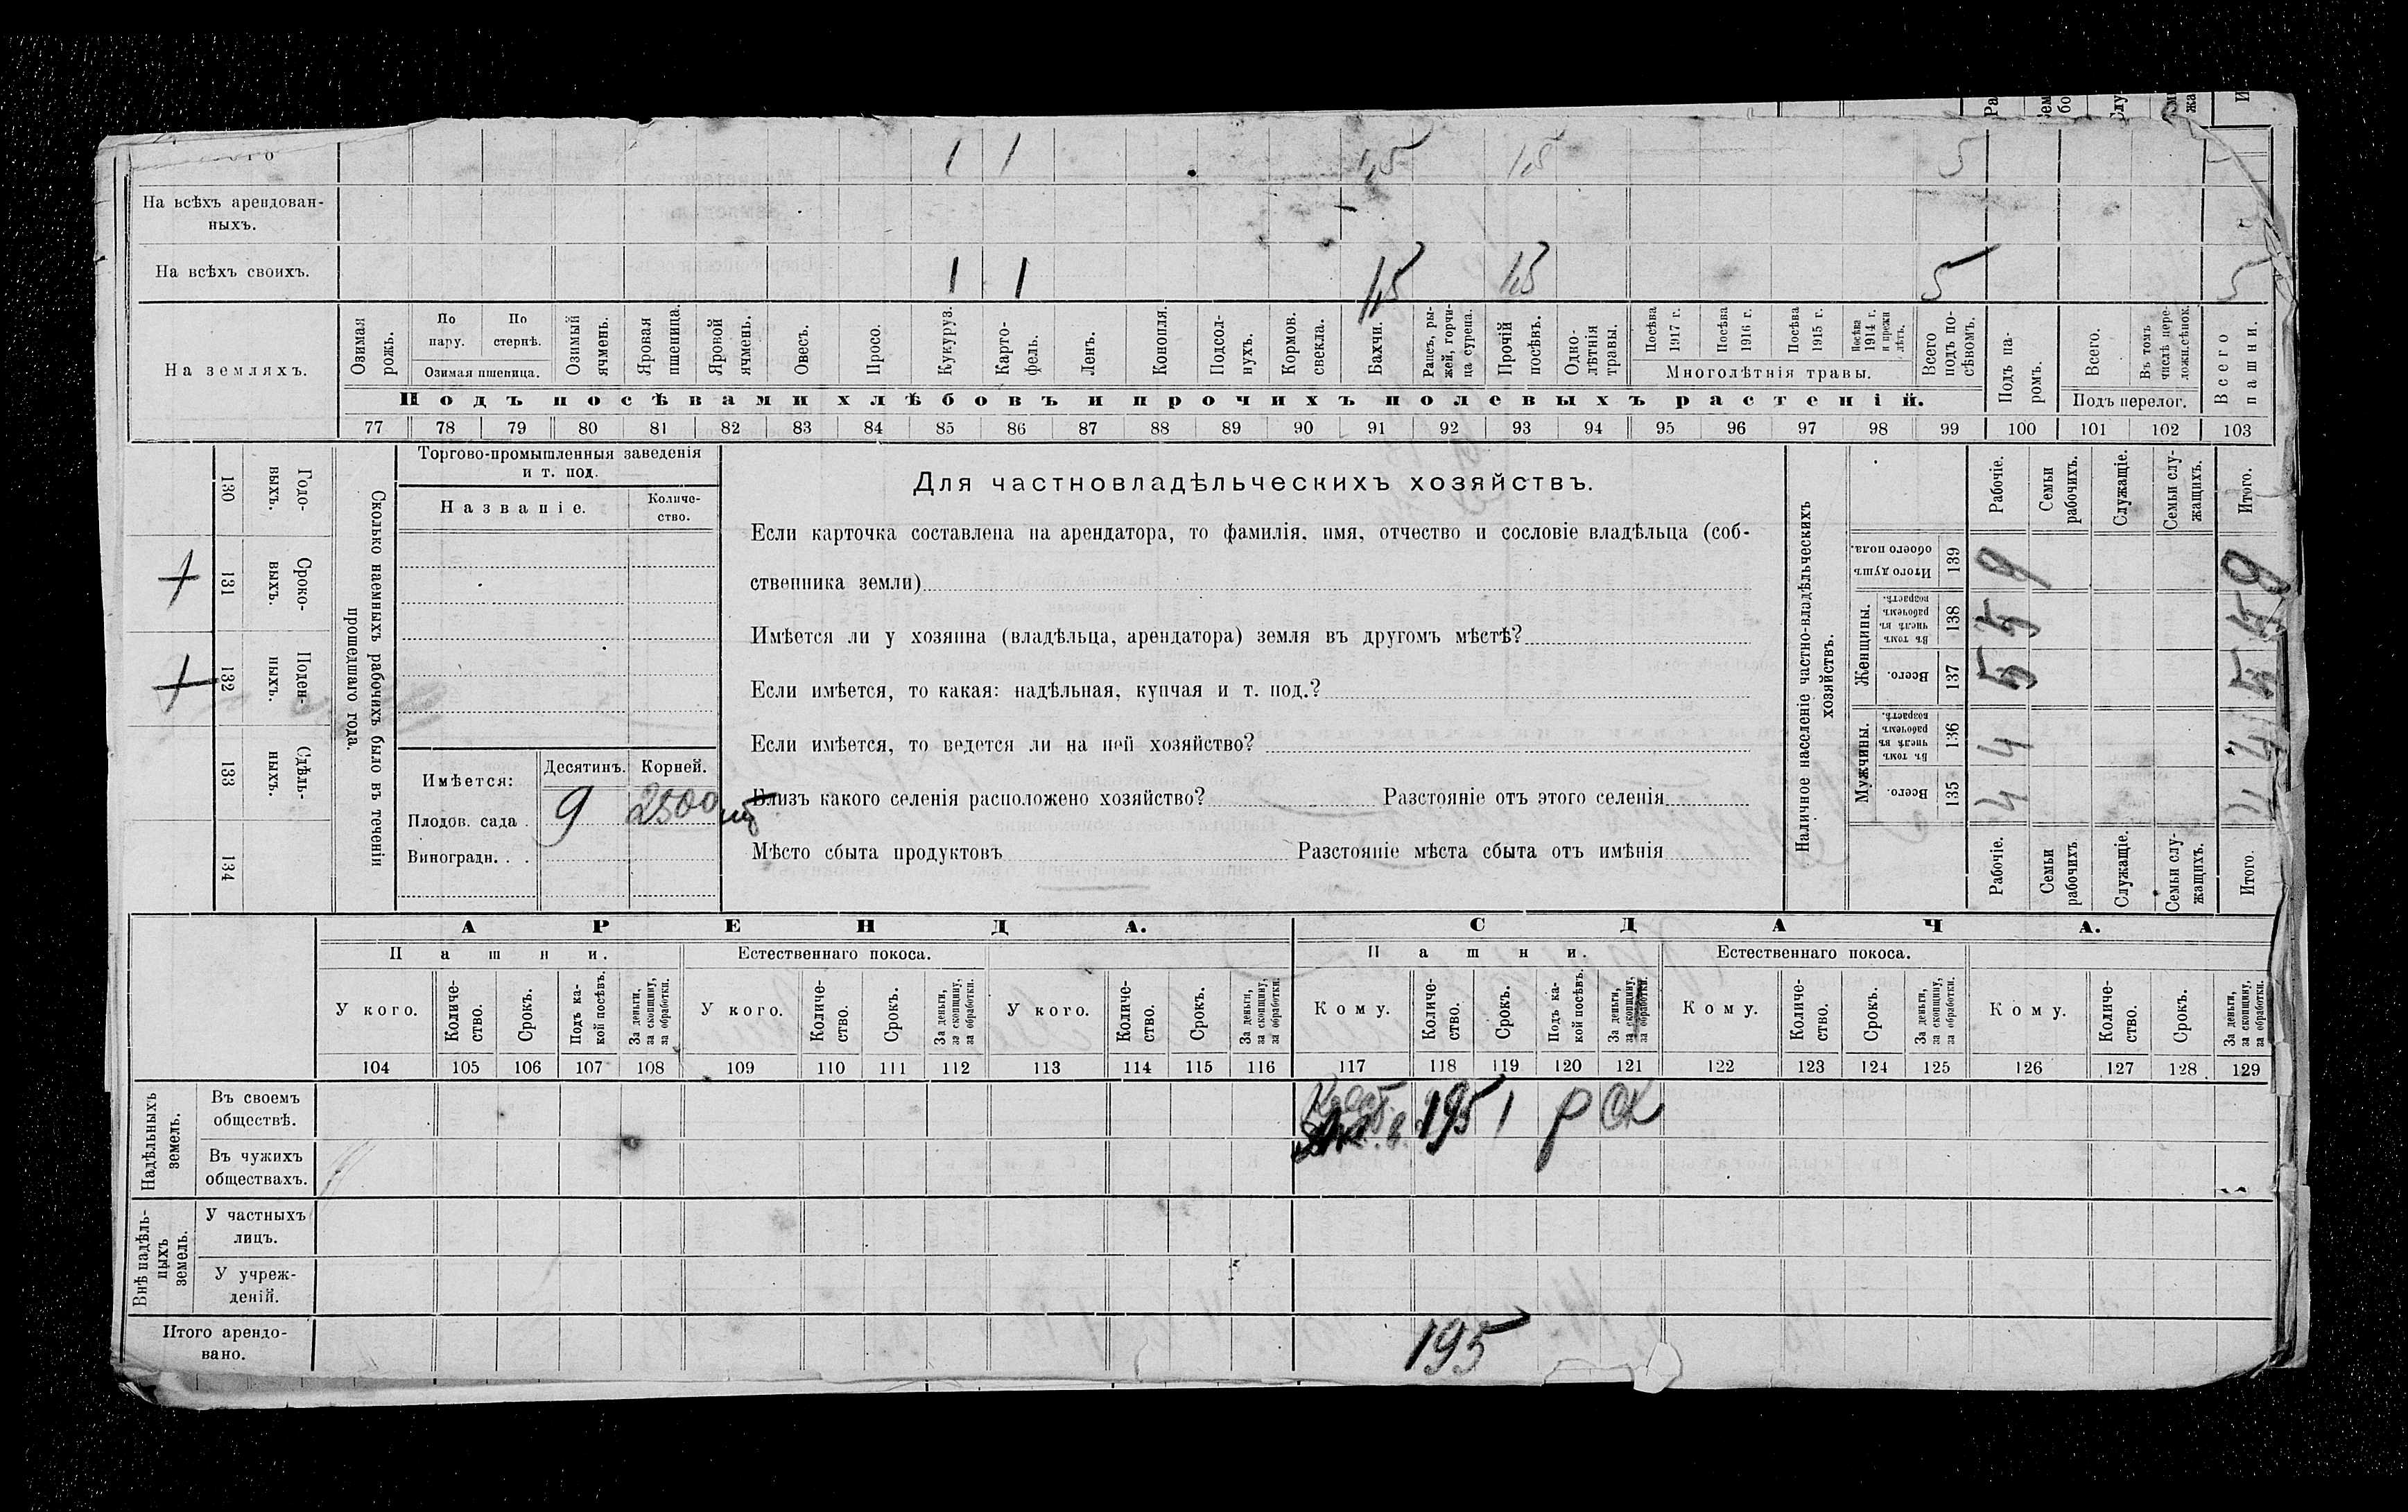 1 1 1,5 1,5 5
На всѣхъ арендован-
ныхъ.
На всѣхъ своихъ. 1 1 1,5 1,5 5 5
На земляхъ.
Озимая рожь.
По пару.
По стернѣ.
Озимая пшеница.
Озимый ячмень.
Яровая пшеница.
Яровой ячмень.
Овесъ.
Просо.
Кукуруз.
Карто-
фель.
Ленъ.
Конопля.
Подсол-
нухъ.
Кормов.
свекла.
Бахчи.
Рапсъ, ры-
жей, горчи-
ца сурепа.
Прочій
посѣвъ.
Одно-
лѣтнія
травы.
Посѣва
1917 г.
Посѣва
1916 г.
Посѣва
1915 г.
Посѣва
1914 г.
и прежн
лѣтъ.
Многолѣтнія травы.
Всего
подъ по-
сѣвомъ.
Подъ па-
ромъ.
Всего.
Въ томъ
числѣ пере-
лож.сѣнок.
Подъ перелог.
Всего
пашни.
Подъ посѣвами хлѣбовъ и прочихъ полевыхъ растеній.
77 78 79 80 81 82 83 84 85 86 87 88 89 90 91 92 93 94 95 96 97 98 99 100 101 102 103
130 Годо-
выхъ.
131 Сроко-
выхъ.
132 Поден-
ныхъ.
133 Сдѣль-
ныхъ.
134
Сколько наемныхъ рабочихъ было въ теченіи
прошедшаго года.
Торгово-промышленныя заведенія
и т. под.
Названіе.
Количе-
ство.
Имѣется:
Десятинъ. Корней.
Плодов. сада . 9 2500 шт
Виноградн. . .
Для частновладѣльческихъ хозяйствъ.
Если карточка составлена на арендатора, то фамилія, имя, отчество и сословіе владѣльца (соб-
ственника земли)
Имѣется ли у хозяина (владѣльца, арендатора) земля въ другомъ мѣстѣ?
Если имѣется, то какая: надѣльная, купчая и т. под.?
Если имѣется, то ведется ли на ней хозяйство?
Близъ какого селенія расположено хозяйство? Разстояніе отъ этого селенія
Мѣсто сбыта продуктовъ Разстояніе мѣста сбыта отъ имѣнія
Наличное населеніе частно-владѣльческихъ
хозяйствъ.
Рабочіе.
Семьи
рабочихъ.
Служащіе.
Семьи слу-
жащихъ.
Итого.
Итого душъ
обоего пола.
139 9 9
Женщины.
Въ томъ
числѣ въ
рабочемъ
возрастѣ.
138 5 5
Всего.
137 5 5
Мужчины.
Въ томъ
числѣ въ
рабочемъ
возрастѣ.
136 4 4
Всего.
135 4 4
Рабочіе.
Семьи
рабочихъ
Служащіе.
Семьи слу-
жащихъ.
Итого.
АРЕНДА. СДАЧА.
Пашни. Естественнаго покоса. Пашни. Естественнаго покоса.
У кого.
Количе-
ство.
Срокъ.
Подъ ка-
кой посѣвъ.
За деньги,
за скопщину,
за обработки.
У кого.
Количе-
ство.
Срокъ.
За деньги,
за скопщину,
за обработки.
У кого.
Количе-
ство.
Срокъ.
За деньги,
за скопщину,
за обработки.
Кому.
Количе-
ство.
Срокъ.
Подъ ка-
кой посѣвъ.
За деньги,
за скопщину,
за обработки.
Кому.
Количе-
ство.
Срокъ.
За деньги,
за скопщину,
за обработки.
Кому.
Количе-
ство.
Срокъ.
За деньги,
за скопщину,
за обработки.
104 105 106 107 108 109 110 111 112 113 114 115 116 117 118 119 120 121 122 123 124 125 126 127 128 129
Надѣльныхъ
земель.
Въ своемъ
обществѣ. 195 1 р ск
Въ чужихъ
обществахъ.
Внѣ надѣль-
ныхъ
земель.
У частныхъ
лицъ.
У учреж-
деній.
Итого арендо-
вано. 195